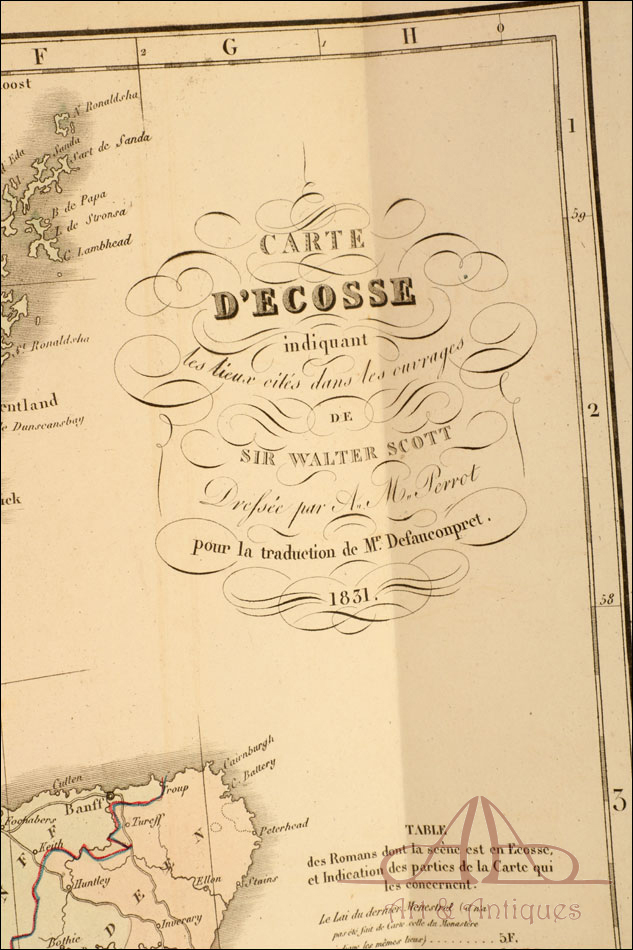 F
2
G
1
H
0
oost
N. Ronaldsha
Eda
Sanda
Sart de Sanda
B de Papa
I. de Stronsa
C. Lambhead
St Ronaldsha
entland
e Dunscansbay
ck
1
59
2
58
3
CARTE
D'ECOSSE
indiquant
les lieux cités dans les ouvrages
DE
SIR WALTER SCOTT
Dressée par A. M. Perrot
pour la traduction de Mr. Defauconpret.
1831.
Cullen
Banff
Troup
Cairnburgh
C. Battery
Fochabers
Keith
Tureff
Peterhead
Huntley
Ellon
Stains
Inverary
Bothic
F F
D E E N
TABLE
des Romans dont la scène est en Ecosse,
et Indication des parties de la Carte qui
les concernent.
Le Lai du dernier Menestrel (on n'a
pas été fait de Carte celle du Monastère
dans les mêmes lieux) 5F.
Art & Antiques